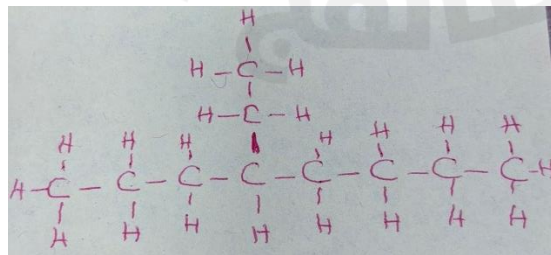 H
H - C - H
H - C - H
H H H H H H H
H - C - C - C - C - C - C - C - C - H
H H H H H H H H